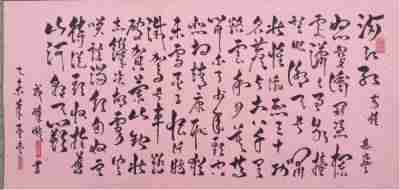 滿江紅 寫懷 岳飛
怒髮衝冠憑欄
處瀟瀟雨歇擡
望眼仰天長嘯
壯懷激烈三十功
名塵與土八千里
路雲和月莫等
閒白了少年頭空
悲切靖康恥猶
未雪臣子恨何時
滅駕長車踏
破賀蘭山缺壯
志飢餐胡虜肉
笑談渴飲匈奴血
待從頭收拾舊
山河朝天闕